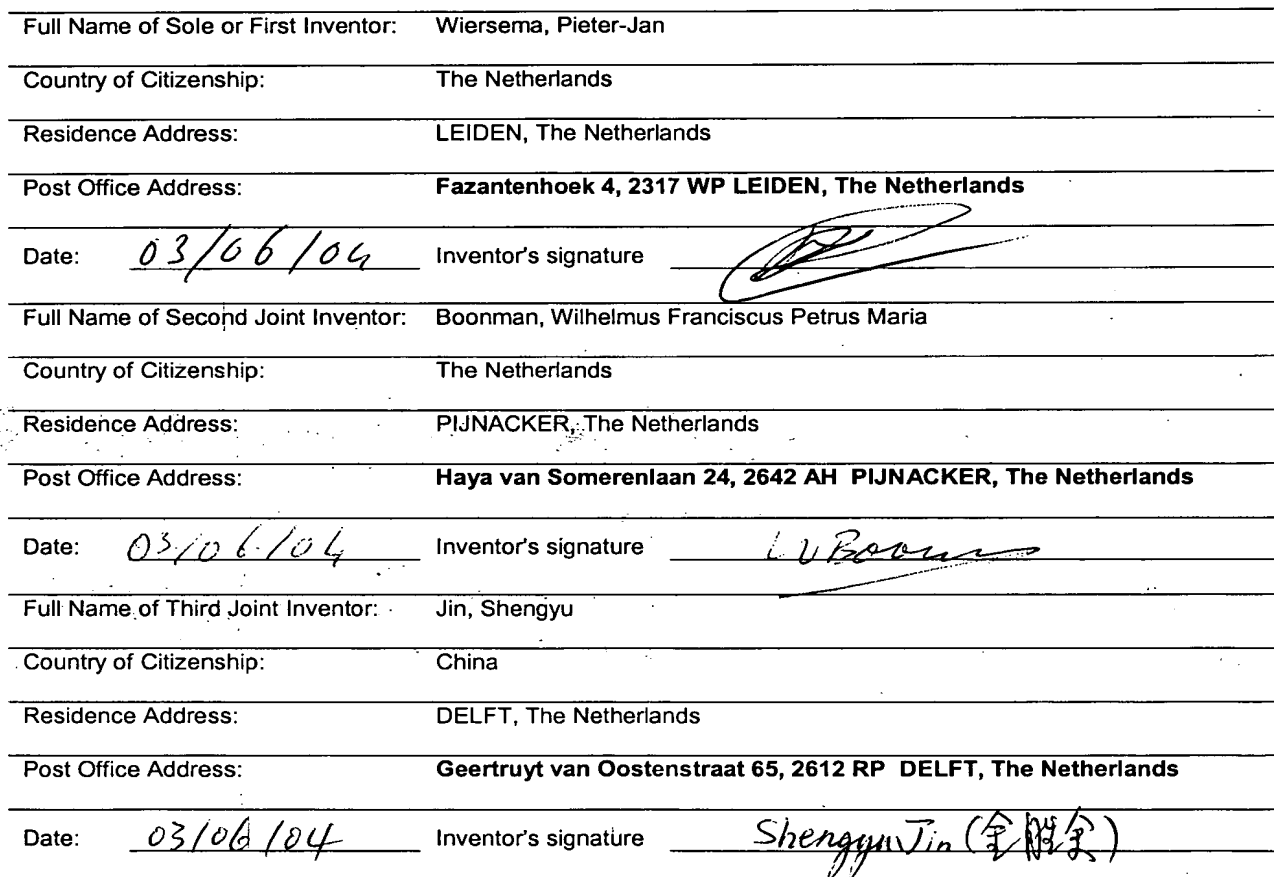 Full Name of Sole or First Inventor: Wiersema, Pieter-Jan
Country of Citizenship: The Netherlands
Residence Address: LEIDEN, The Netherlands
Post Office Address: Fazantenhoek 4, 2317 WP LEIDEN, The Netherlands
Date: 03/06/04 Inventor's signature
Full Name of Second Joint Inventor: Boonman, Wilhelmus Franciscus Petrus Maria
Country of Citizenship: The Netherlands
Residence Address: PIJNACKER, The Netherlands
Post Office Address: Haya van Somerenlaan 24, 2642 AH PIJNACKER, The Netherlands
Date: 03/06/04 Inventor's signature
Full Name of Third Joint Inventor: Jin, Shengyu
Country of Citizenship: China
Residence Address: DELFT, The Netherlands
Post Office Address: Geertruyt van Oostenstraat 65, 2612 RP DELFT, The Netherlands
Date: 03/06/04 Inventor's signature Shengyu Jin